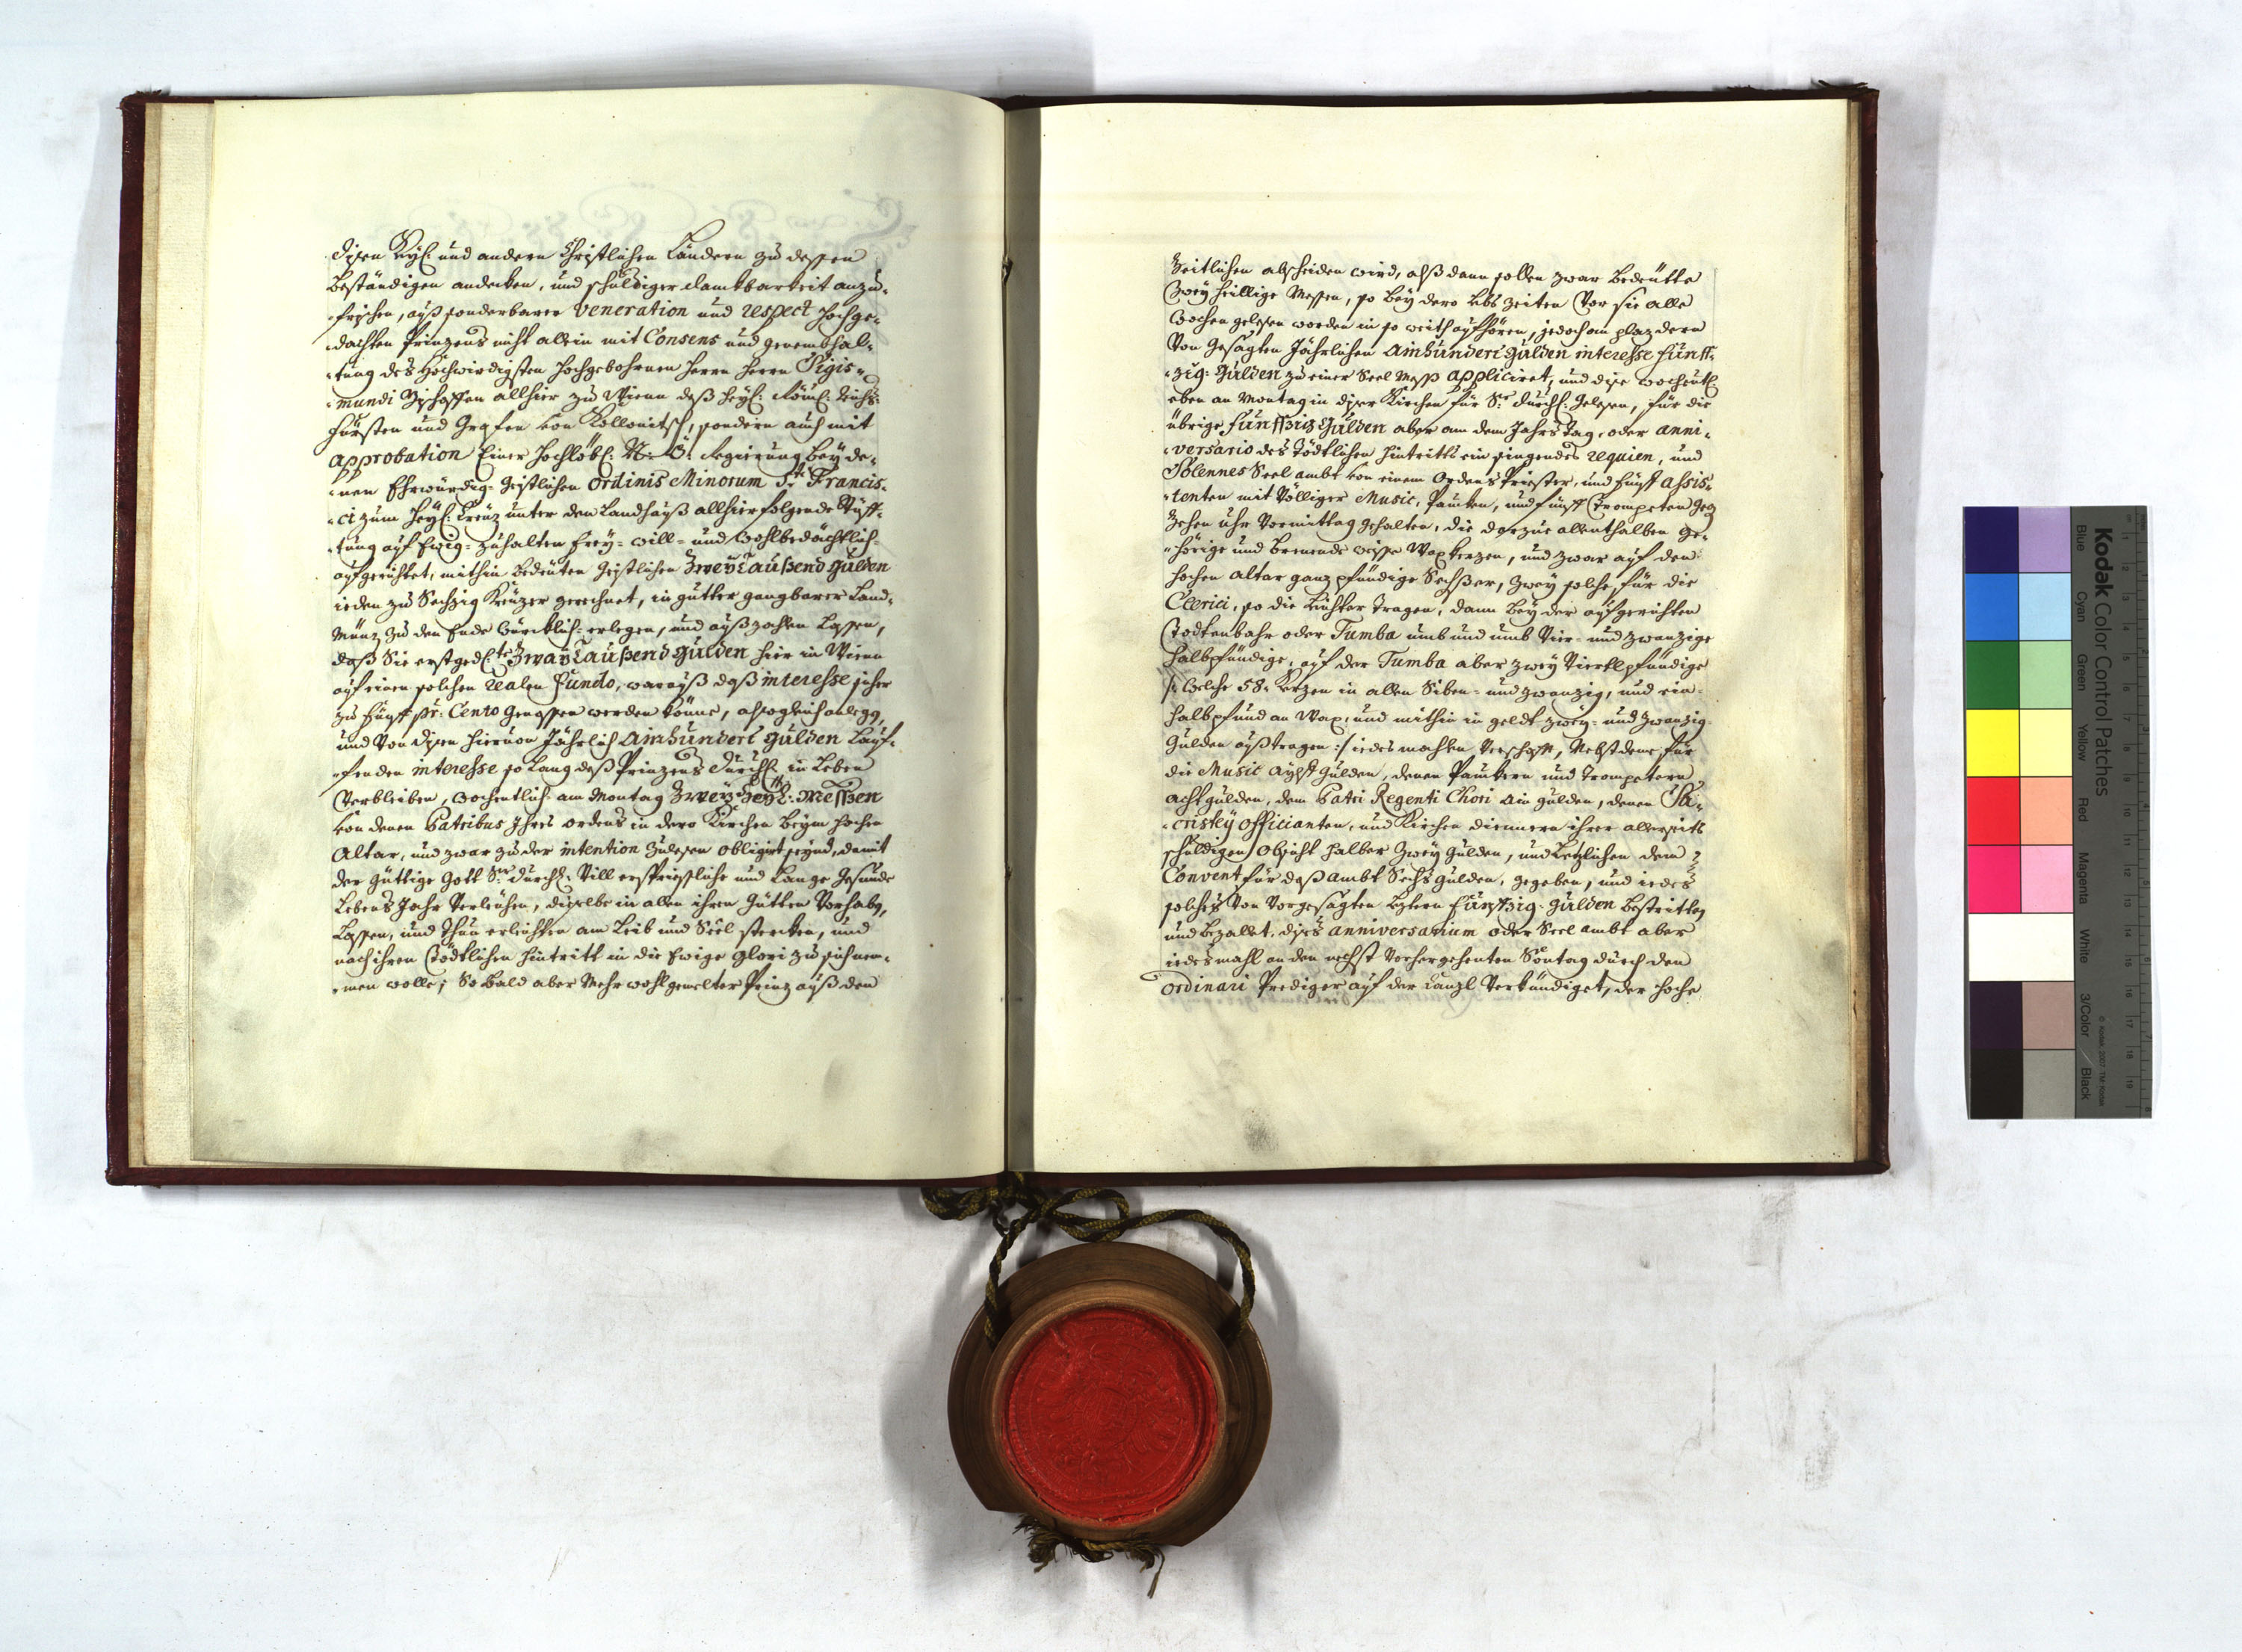 disen Kay: und andern Christlichen Ländern zu dessen
beständigen andenken, und schuldiger dankbarkeit anzu-
-frischen, auß sonderbarer Veneration und respect hochge-
-dachten Prinzens nicht allein mit Consens und genembhal-
-tung des Hochwirdigsten hochgebohrnen Herrn Herrn Sigis-
-mundi Bischoffen allhier zu Wienn deß Heyl: Röm: Reichs
Fürsten und Grafen von Kollonitsch, sondern auch mit
approbation Einer Hochlöbl: N: Ö: Regierung bey de-
-nen Ehrwürdig-Geistlichen Ordinis Minorum S:ti Francis-
-ci zum Heyl: Creuz unter den Landhauß allhier folgende Stüff-
-tung auf Ewig-zuhalten frey-will- und wohlbedächtlich-
aufgerichtet, mithin bedeuten Geistlichen Zweytaußend gulden
ieden zu Sechzig Kreuzer gerechnet, in gutter gangbarer Land-
Münz zu dem Ende würcklich-erlegen, und außzahlen lassen,
daß Sie erstged:te Zwaytaußend gulden hier in Wienn
auf einen solchen realen Fundo, warauß daß interesse sicher
zu Fünff pr: Cento genossen werden könne, alsogleich anlegen,
und Von disen hiervon Jährlich Ainhundert gulden Lauf-
-fenden interesse so lang deß Prinzens Durchl: in Leben
Verbleiben, wochentlich-am Montag Zwey Heyl: Messen
von denen Patribus Ihres ordens in dero Kirchen beym hochen
Altar, und zwar zu der intention zulesen obligirt seynd, damit
der güttige Gott Sr: Durchl: Vill ersprießliche und Lange gesunde
Lebens Jahr Verleichen, dieselbe in allen ihren gutten Vorhaben,
Lassen, und Thun erleichten am Leib und Seel sterken, und
nach ihren Tödtlichen hintritt in die Ewige glori zu sich nem-
-men wolle; So bald aber Mehr wohlgemelter Prinz auß den
Zeitlichen abscheiden wird, alß dann sollen zwar bedeutte
Zwey heillige Messen, so bey dero Lebs zeiten Vor sie alle
Wochen gelesen worden in so weith aufhören, jedoch an plaz deren
Von gesagten Jährlichen Ainhundert gulden interesse Fünff-
-zig-gulden zu einer Seel Mess appliciret, und dise wochentl:
eben an Montag in diser Kirchen für Sr: Durchl: gelesen, für die
übrige Fünffzig gulden aber am dem Jahrs Tag, oder anni-
-versario des Tödtlichen hintritts ein singendes requien, und
Solennes Seel ambt von einem Ordens Priester, und Fünff assis-
-tenten mit Völliger Music, Paucken, und Fünff Trompeten gegen
zehen uhr Vormittag gehalten, die darzue allenthalben ge-
-hörige und brenende weisse Wax kerzen, und zwar auf den
hochen Altar ganz pfündige Sechßer, zwey solche für die
Clerici, so die Leichter Tragen, dann bey der aufgerichten
Todtenbahr oder Tumba umb und umb Vier- und zwanzige
halbpfündige, auf der Tumba aber zwey Viertlpfündige
/: welche 58. Kerzen in allen Siben- und zwanzig, und ein-
halb pfund an Wax, und mithin in geldt zwey- und zwanzig-
gulden außtragen :/ iedes mahlen Verschafft, Nebst deme für
die Music Aylff gulden, denen Pauckern und Trompetern
acht gulden, dem Patri Regenti Chori ain gulden, denen Sa-
-cristey officianten, und Kirchen dienern ihrer allerseits
schuldigen Obsicht halber Zwey gulden, und Letzlichen dem
Convent für daß ambt Sechs gulden, gegeben, und iedes
solches Von Vorgesagten Leztern Fünfzig-gulden bestritten
und bezallet, dises anniversarium oder Seel ambt aber
iedesmahl an den nechst Vorhergehenten Sontag durch den
ordinari Prediger auf der Canzl Verkündiget, der hoche
Kodak Color Control Patches
Blue Cyan Green Yellow Red Magenta White 3/Color Black
© Kodak, 2007 TM: Kodak